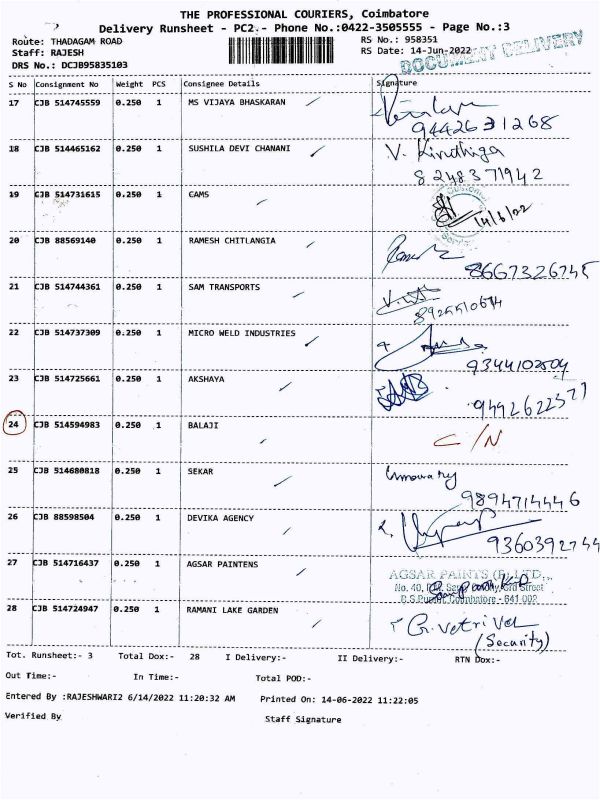 THE PROFESSIONAL COURIERS, Coimbatore
Delivery Runsheet - PC2.- Phone No.:0422-3505555 - Page No.:3
Route: THADAGAM ROAD RS No.: 958351
Staff: RAJESH RS Date: 14-Jun-2022
DRS No.: DCJB95835103 DOCUMENT DELIVERY
S No Consignment No Weight PCS Consignee Details Signature
17 CJB 514745559 0.250 1 MS VIJAYA BHASKARAN
9442631268
18 CJB 514465162 0.250 1 SUSHILA DEVI CHANANI V. Kirdhiga
8248371942
19 CJB 514731615 0.250 1 CAMS 14/6/22
20 CJB 88569140 0.250 1 RAMESH CHITLANGIA
8667326745
21 CJB 514744361 0.250 1 SAM TRANSPORTS
22 CJB 514737309 0.250 1 MICRO WELD INDUSTRIES
9344102504
23 CJB 514725661 0.250 1 AKSHAYA
24 CJB 514594983 0.250 1 BALAJI C/N
25 CJB 514680818 0.250 1 SEKAR
9894714446
26 CJB 88598504 0.250 1 DEVIKA AGENCY
9360392744
27 CJB 514716437 0.250 1 AGSAR PAINTENS AGSAR PAINTS (P) LTD.,
No. 40, Street
Coimbatore - 641 002
28 CJB 514724947 0.250 1 RAMANI LAKE GARDEN G. Vetrivel
(Security)
Tot. Runsheet:- 3 Total Dox:- 28 I Delivery:- II Delivery:- RTN Dox:-
Out Time:- In Time:- Total POD:-
Entered By :RAJESHWARI2 6/14/2022 11:20:32 AM Printed On: 14-06-2022 11:22:05
Verified By Staff Signature